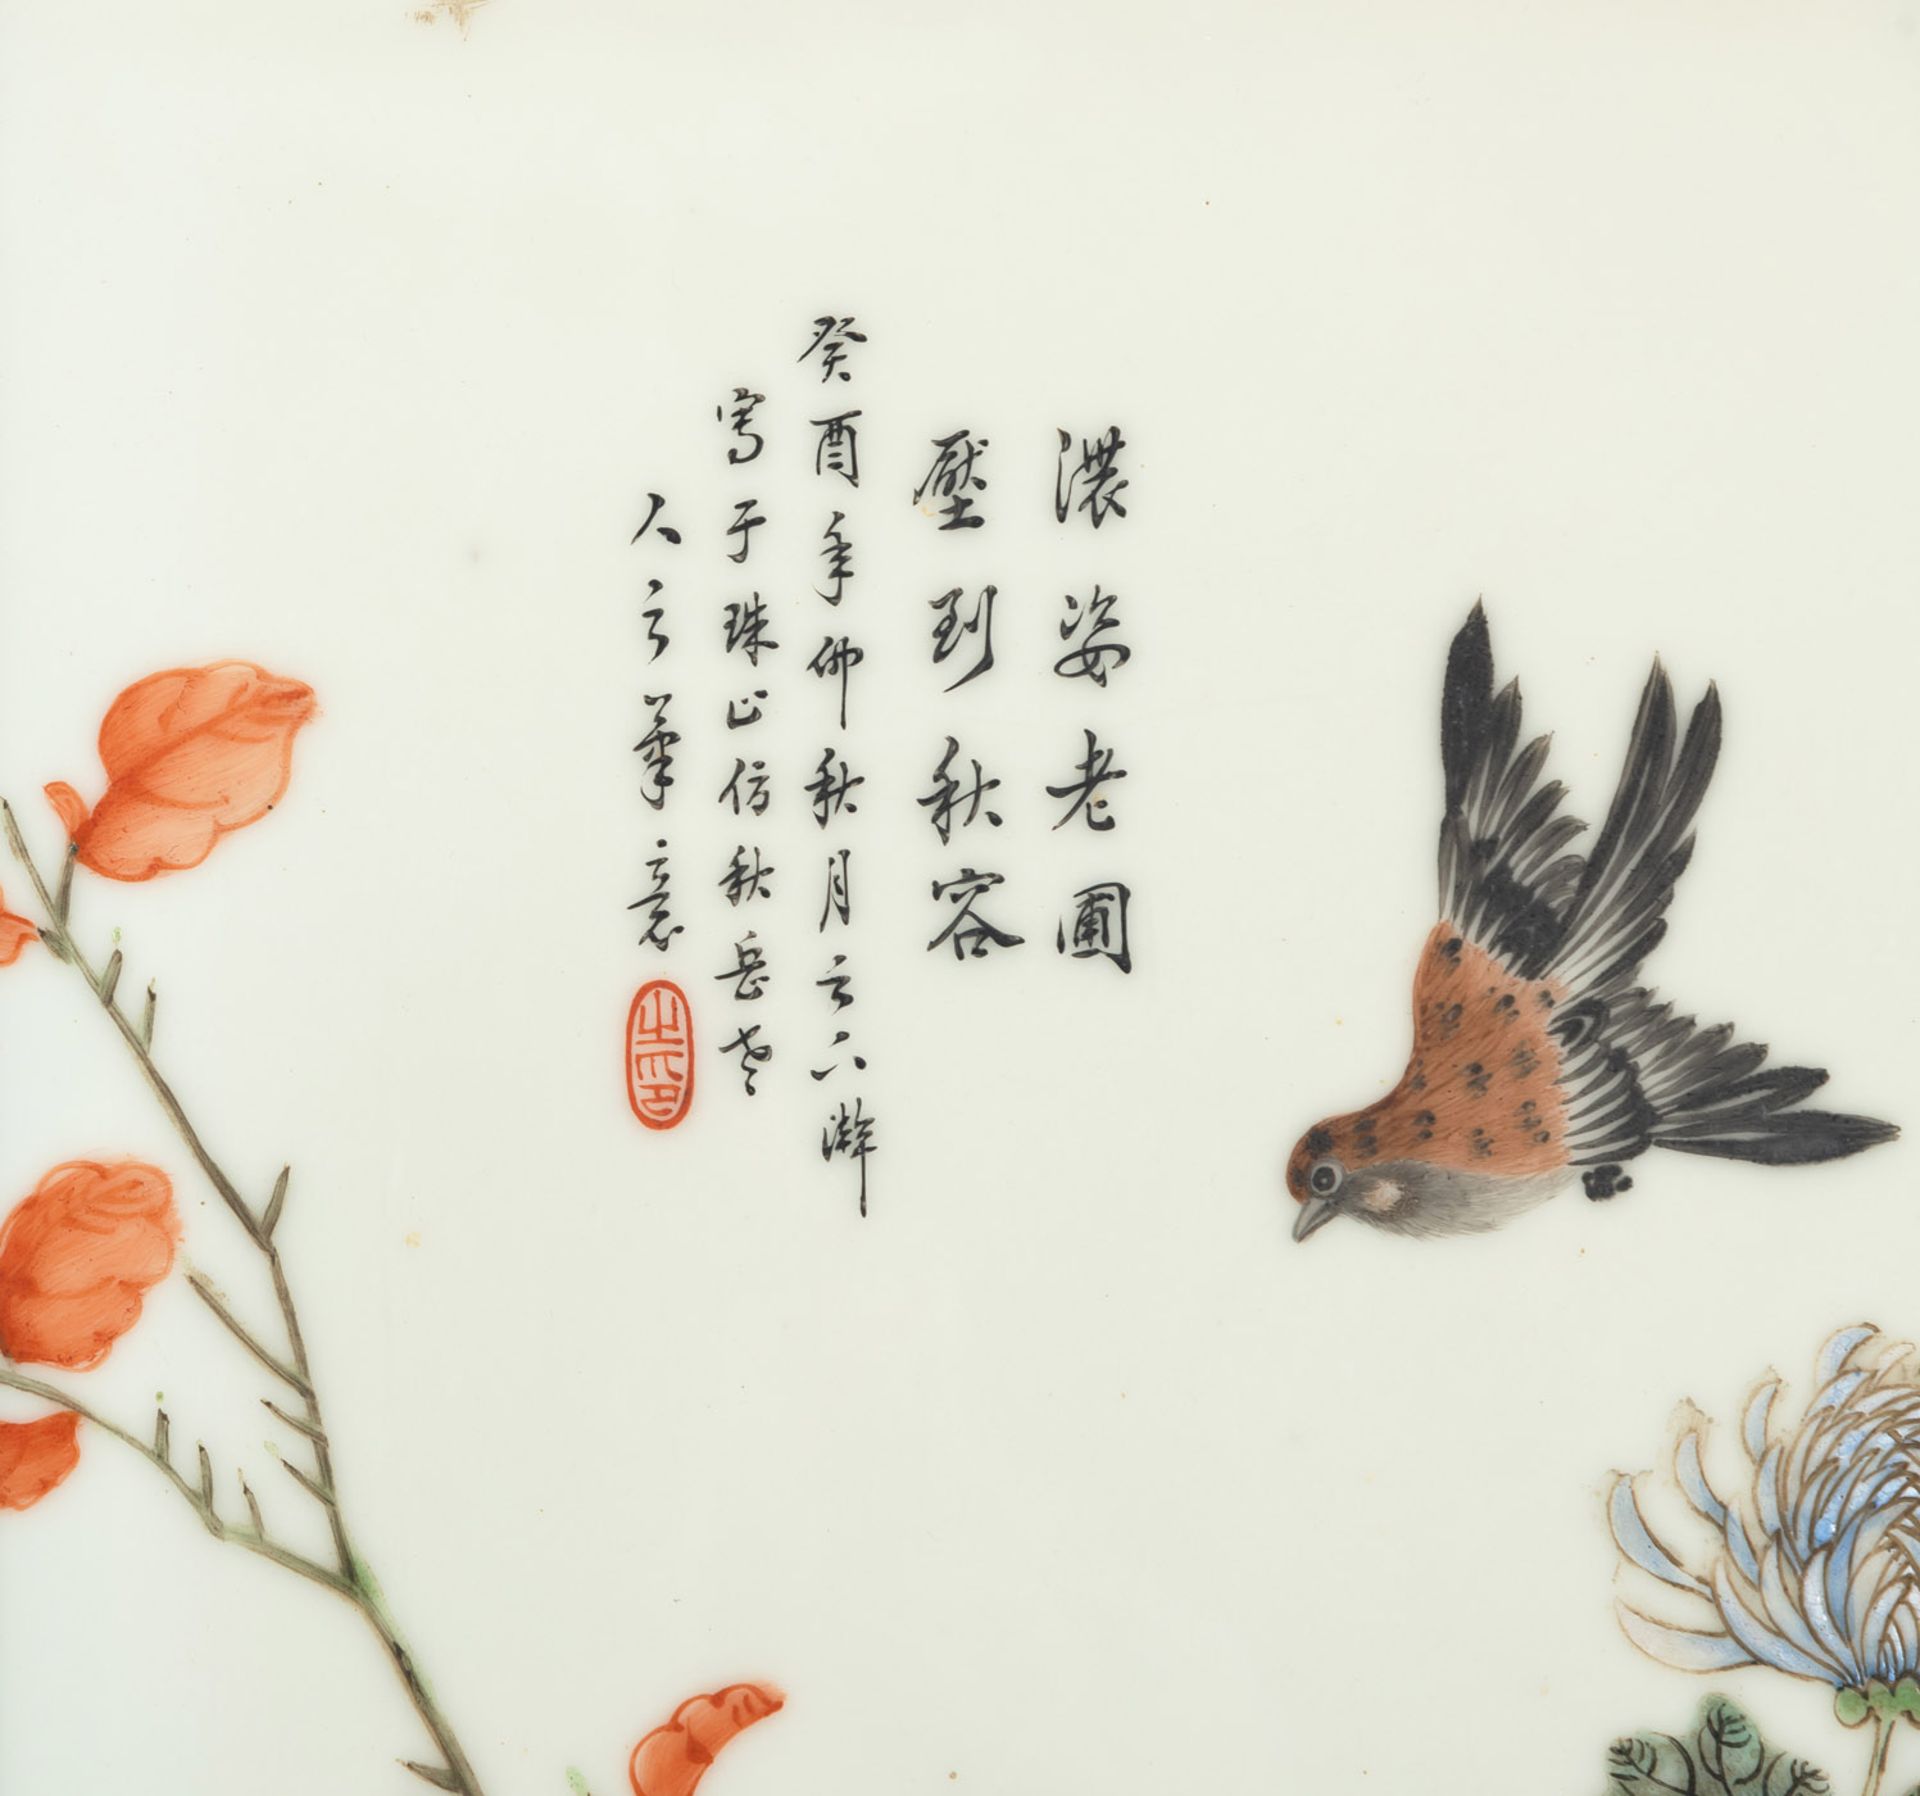 濃姿老圃
壓到秋容
癸酉年仲秋月云六澣
寫于珠山仿秋岳老
人之筆意
之印